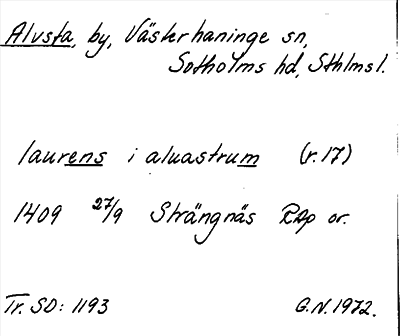 Alvsta, by, Västerhaninge sn,
Sotholms hd, Sthlms l.
laurens i aluastrum (r. 17)
1409 27/9 Strängnäs RAp or.
Tr. SD: 1193 G.N. 1972.